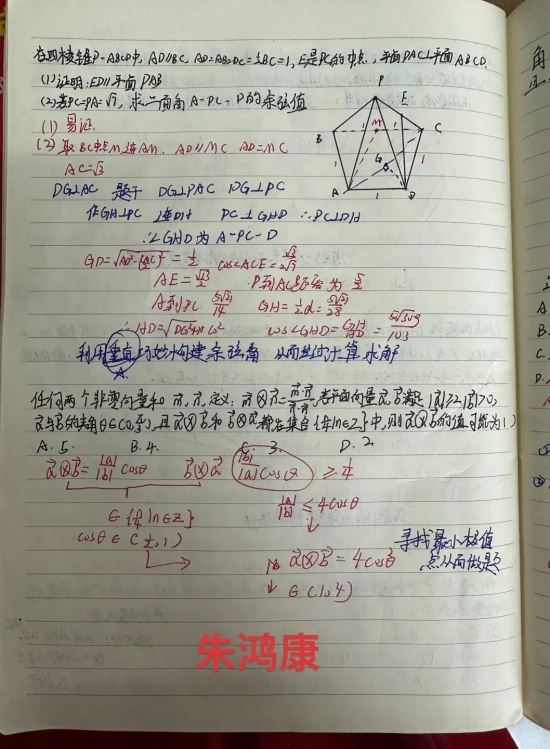 在四棱锥P-ABCD中, AD∥BC, AD=AB=DC=½BC=1, E是PC的中点, 平面PAC⊥平面ABCD.
(1)证明:ED∥平面PAB
(2)若PC=PA=√7, 求二面角A-PC-D的余弦值
(1) 易证.
(2) 取BC中点M,连AM. AD∥MC AD=MC
AC=√3
DG⊥AC 易于 DG⊥PAC DG⊥PC
作GH⊥PC 连DH PC⊥GHD ∴PC⊥DH
∴∠GHD为 A-PC-D
P
E
B
M
C
G
A
D
1
1
1
1
1
GD=√(AD²-(½AC)²)=½
AE=√3/2
P到AC距离为 5/2
A到PC 5√21/14
GH=½d=5√21/28
∴HD=√(DG²+H G²)
cos∠GHD=GH/HD=5√309/103
利用垂直巧妙构建余弦角 从而经过计算求解
任何两个非零向量m, n, 定义: m⊗n=m·n/n·n, 若平面向量a,b满足|a|≥|b|>0,
a与b的夹角θ∈(0,π/3), 且a⊗b和b⊗a都在集合{n/4|n∈Z}中, 则a⊗b的值可能为( )
A. 5. B. 4. C. 3. D. 2
a⊗b=|a|/|b| cosθ b⊗a |b|/|a| cosθ ≥ 1/4
|a|/|b| ≤ 4cosθ
∈{n/4|n∈Z}
cosθ∈(½,1)
a⊗b=4cos²θ
∈(1,4)
寻找最小极值
点从而做题
朱鸿康
角